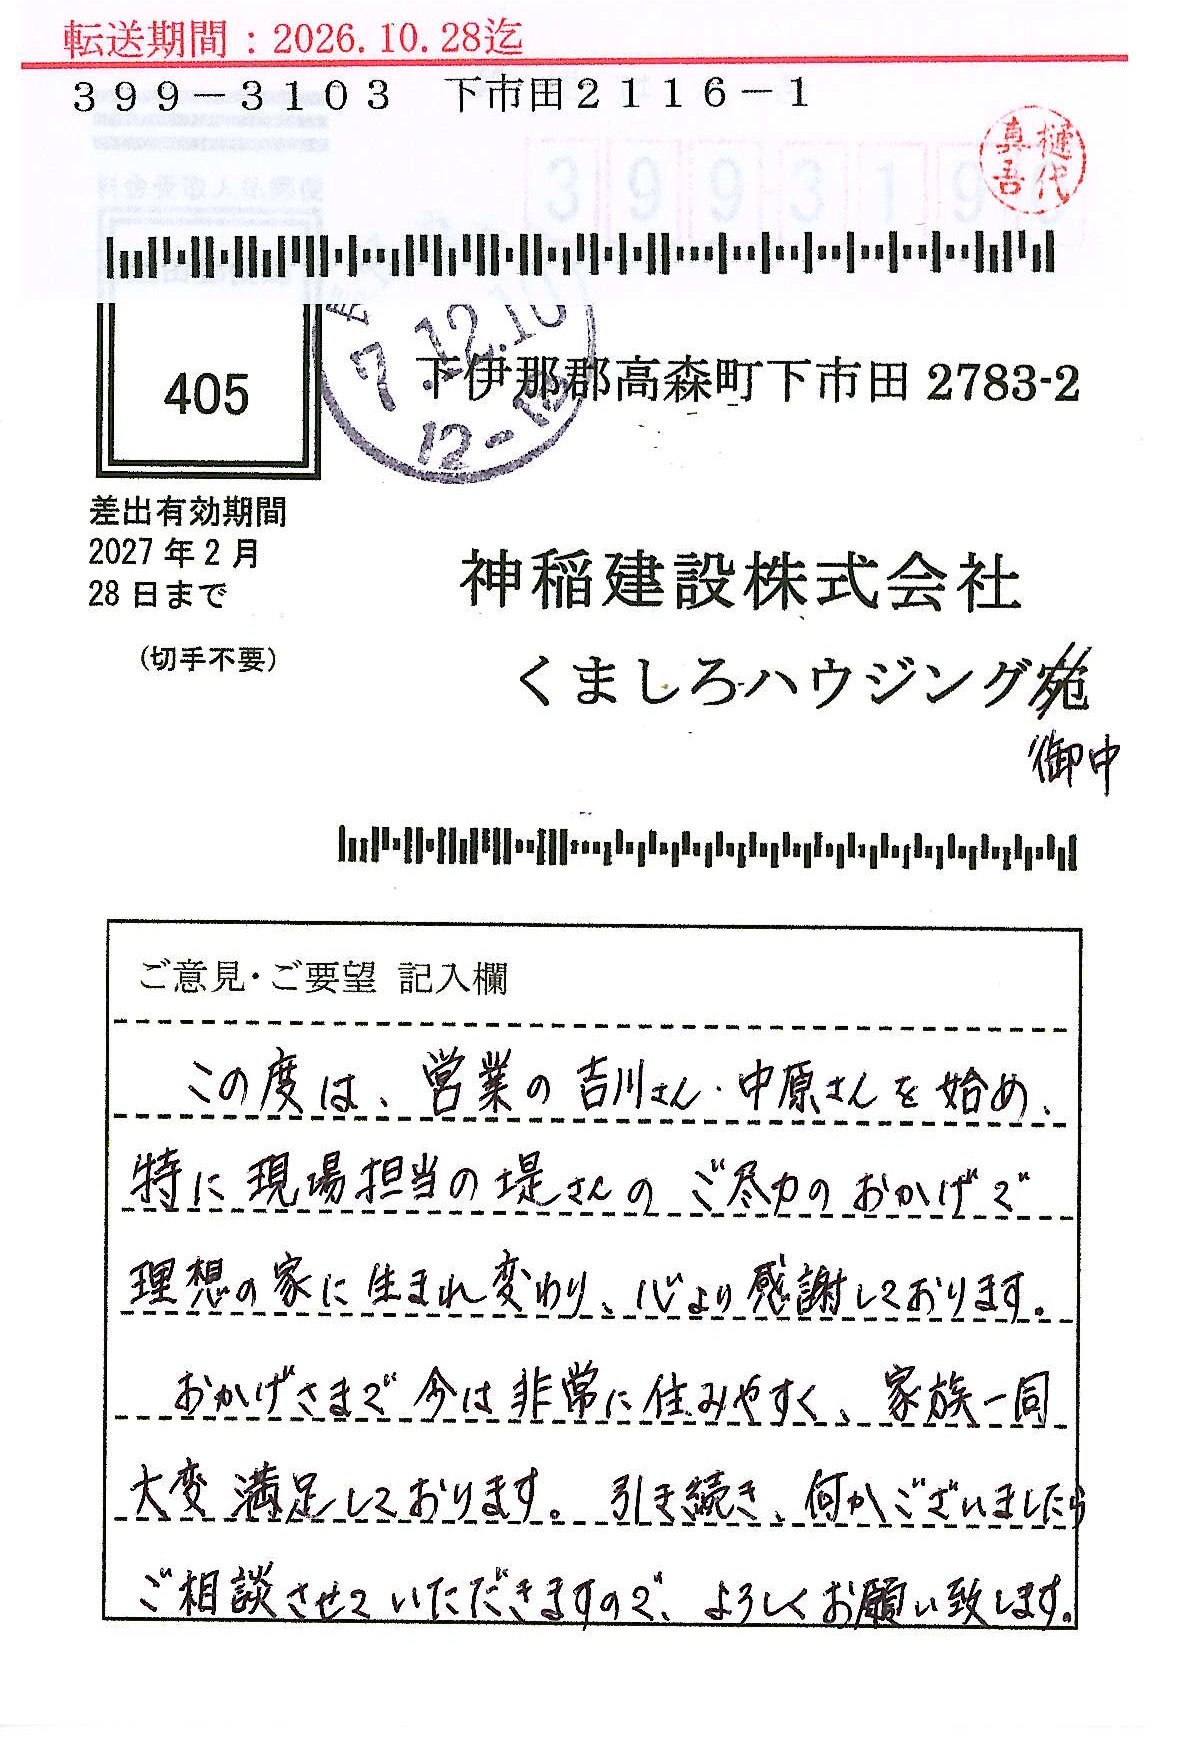 転送期間：2026.10.28迄
399-3103　下市田2116-1
樋代
真吾
399319
405
7.12.10
12-18
下伊那郡高森町下市田 2783-2
差出有効期間
2027 年 2 月
28 日まで
(切手不要)
神稲建設株式会社
くましろハウジング宛
御中
ご意見・ご要望 記入欄
この度は、営業の吉川さん・中原さんを始め、
特に現場担当の堤さんのご尽力のおかげで
理想の家に生まれ変わり、心より感謝しております。
おかげさまで今は非常に住みやすく、家族一同
大変満足しております。引き続き、何かございましたら
ご相談させていただきますので、よろしくお願い致します。